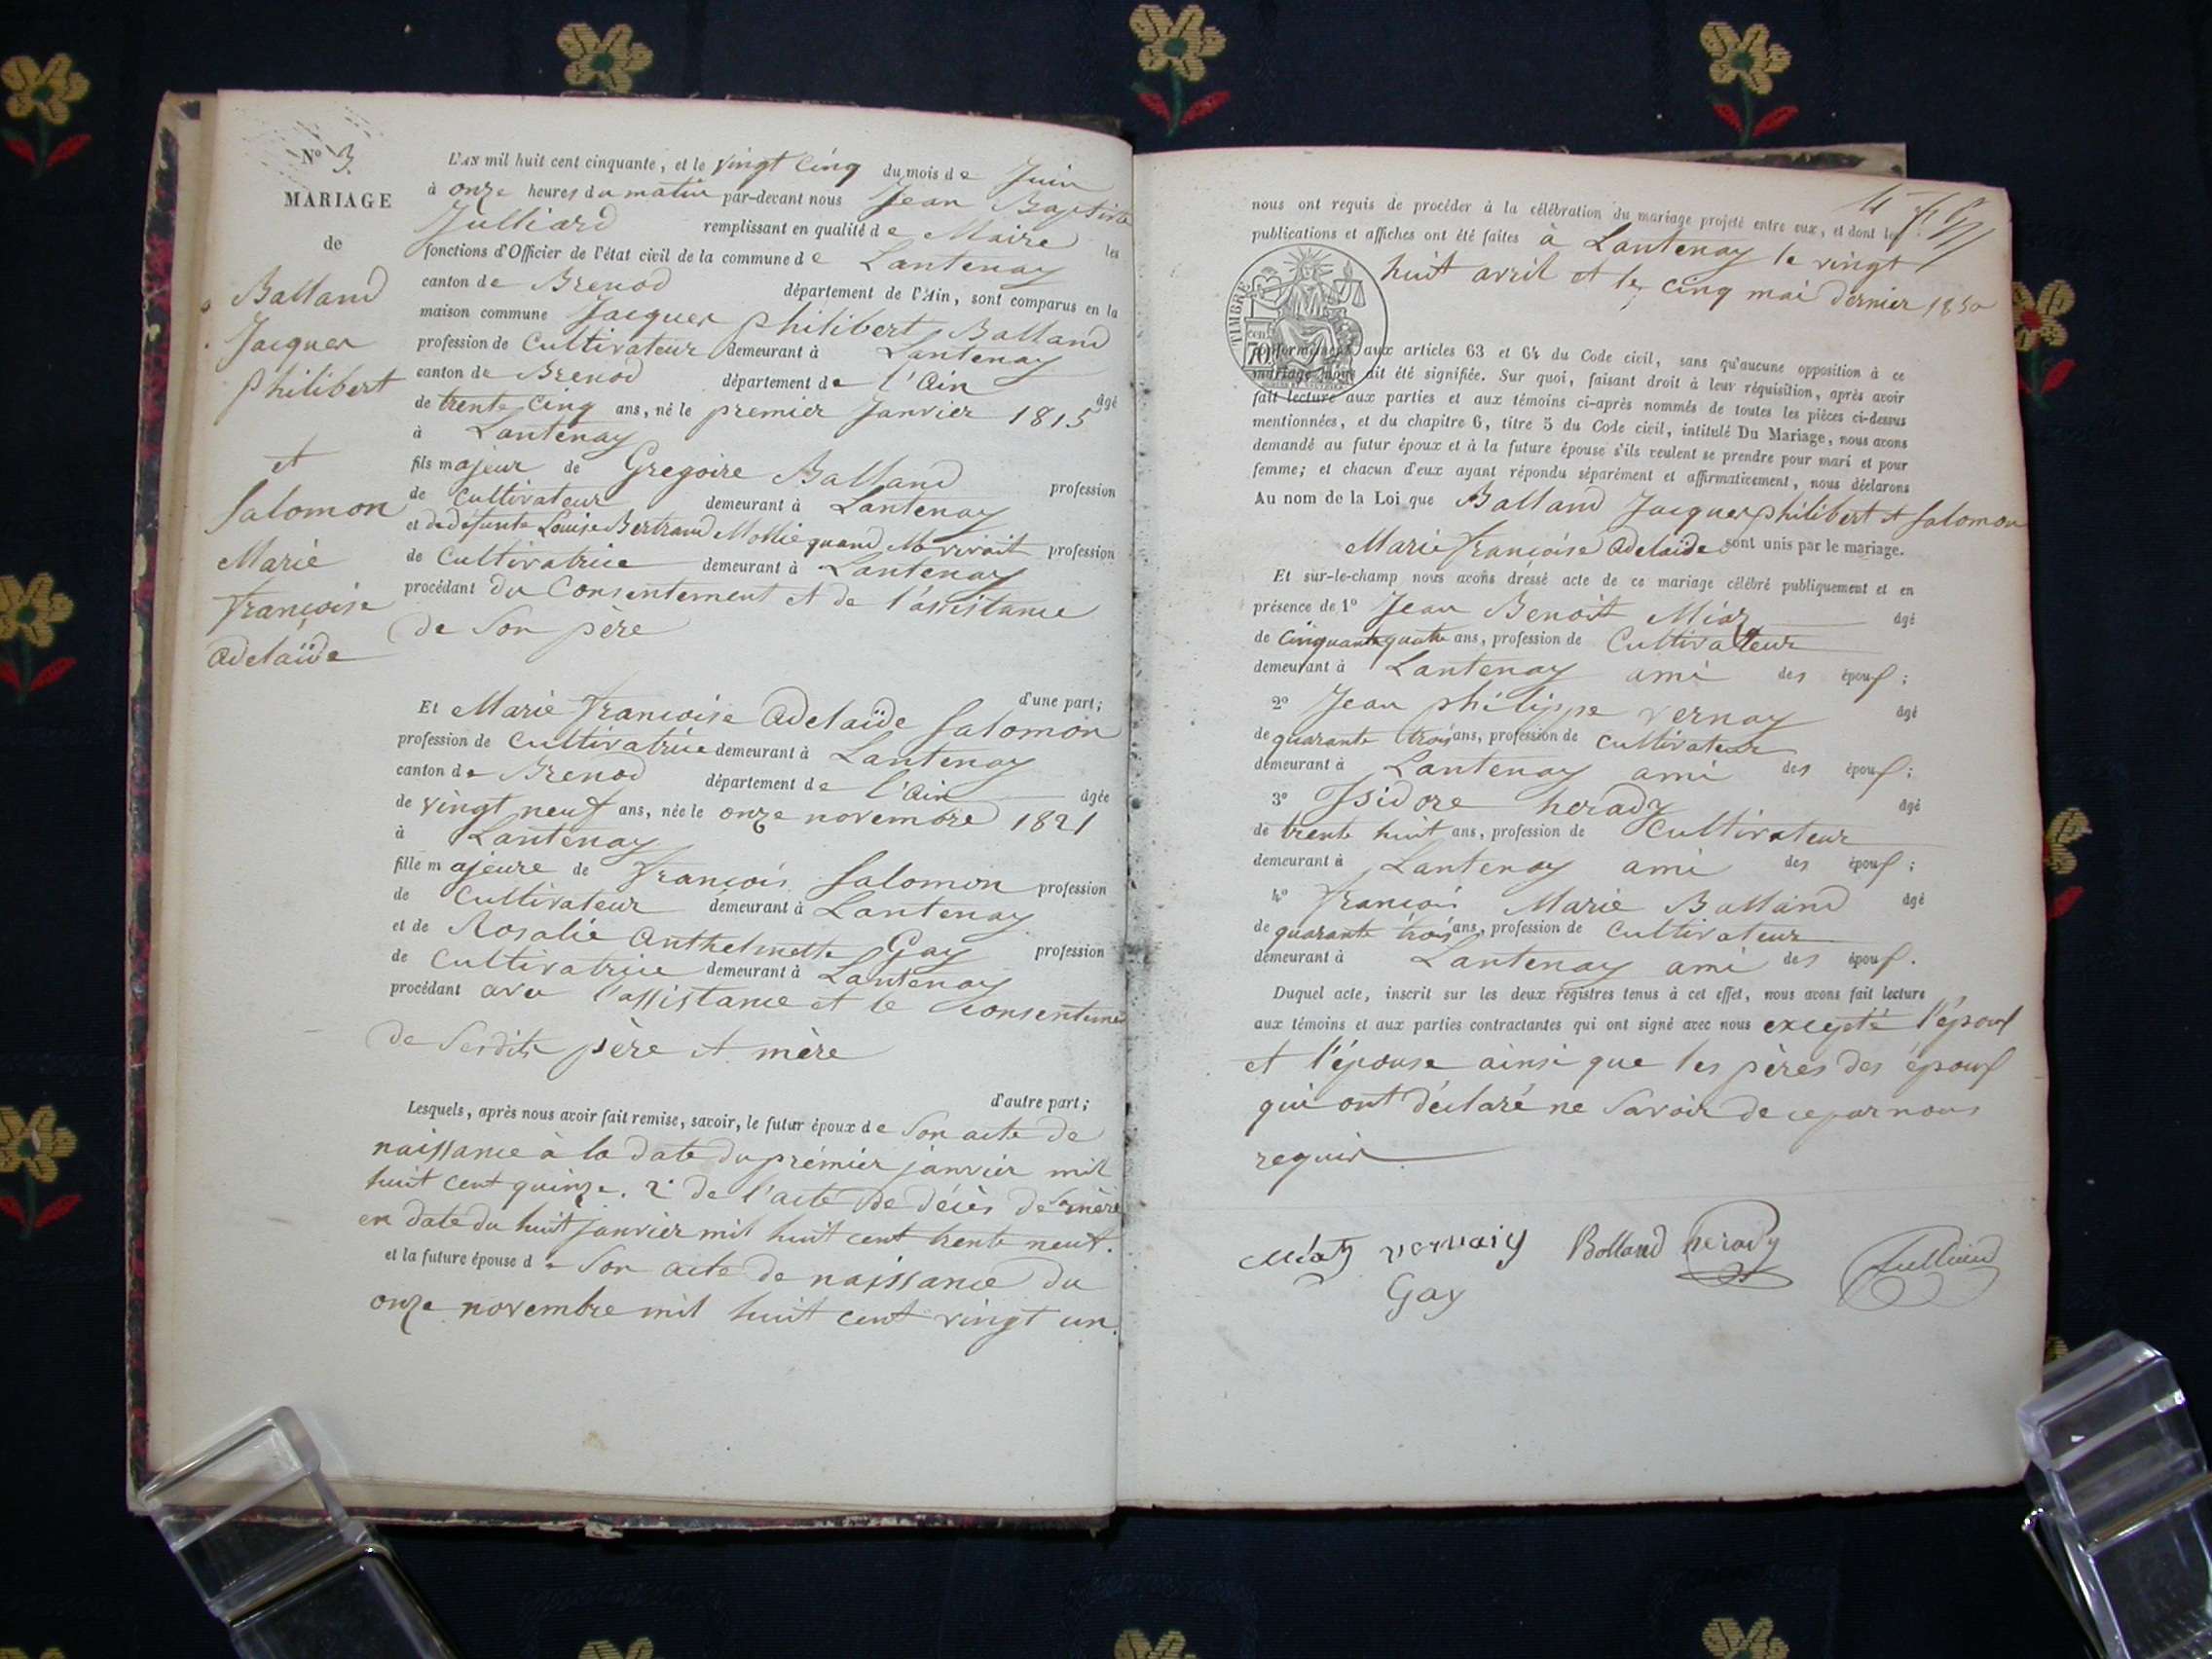 N° 3
MARIAGE
de
Balland
Jacques
Philibert
et
Salomon
Marie
françoise
Adelaïde
L'AN mil huit cent cinquante, et le vingt cinq du mois de Juin
à onze heures du matin par-devant nous Jean Baptiste
Julliard remplissant en qualité de Maire les
fonctions d'Officier de l'état civil de la commune de Lantenay
canton de Brenod département de l'Ain, sont comparus en la
maison commune Jacques philibert Balland
profession de Cultivateur demeurant à Lantenay
canton de Brenod département de l'Ain âgé
de trente cinq ans, né le premier Janvier 1815
à Lantenay
fils majeur de Gregoire Balland profession
de Cultivateur demeurant à Lantenay
et de défunte Louise Bertrand quand vivait profession
de Cultivatrice demeurant à Lantenay
procédant du Consentement et de l'assistance
de Son père
d'une part;
Et Marie françoise Adelaïde Salomon
profession de Cultivatrice demeurant à Lantenay
canton de Brenod département de l'Ain âgée
de vingt neuf ans, née le onze novembre 1821
à Lantenay
fille majeure de françois Salomon profession
de Cultivateur demeurant à Lantenay
et de Rosalie Anthelmette Gay profession
de Cultivatrice demeurant à Lantenay
procédant avec l'assistance et le consenteme
de Sesdits père et mère
d'autre part;
Lesquels, après nous avoir fait remise, savoir, le futur époux de Son acte de
naissance à la date du prémier janvier mil
huit cent quinze. 2° de l'acte de décès de Sa mère
en date du huit janvier mil huit cent trente neuf.
et la future épouse de Son acte de naissance du
onze novembre mil huit cent vingt un.
nous ont requis de procéder à la célébration du mariage projeté entre eux, et dont les
publications et affiches ont été faites à Lantenay le vingt
huit avril et le cinq mai dernier 1850
TIMBRE
70 cent
conformément aux articles 63 et 64 du Code civil, sans qu'aucune opposition à ce
mariage nous ait été signifiée. Sur quoi, faisant droit à leur réquisition, après avoir
fait lecture aux parties et aux témoins ci-après nommés de toutes les pièces ci-dessus
mentionnées, et du chapitre 6, titre 5 du Code civil, intitulé Du Mariage, nous avons
demandé au futur époux et à la future épouse s'ils veulent se prendre pour mari et pour
femme; et chacun d'eux ayant répondu séparément et affirmativement, nous déclarons
Au nom de la Loi que Balland Jacques philibert et Salomon
Marie françoise Adelaïde sont unis par le mariage.
Et sur-le-champ nous avons dressé acte de ce mariage célébré publiquement et en
présence de 1° Jean Benoit Miaz âgé
de Cinquante quatre ans, profession de Cultivateur
demeurant à Lantenay ami des époux;
2° Jean philippe Vernay âgé
de quarante trois ans, profession de Cultivateur
demeurant à Lantenay ami des époux;
3° Isidore herady âgé
de trente huit ans, profession de Cultivateur
demeurant à Lantenay ami des époux;
4° françois Marie Balland âgé
de quarante trois ans, profession de Cultivateur
demeurant à Lantenay ami des époux.
Duquel acte, inscrit sur les deux registres tenus à cet effet, nous avons fait lecture
aux témoins et aux parties contractantes qui ont signé avec nous excepté l'époux
et l'épouse ainsi que les pères des époux
qui ont déclaré ne Savoir de ce par nous
requis
Miaz vervaiy Bolland herady Julliard
Gay